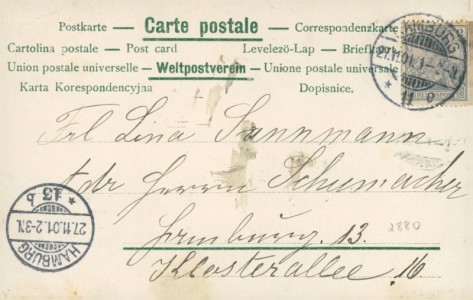 Postkarte — Carte postale — Correspondenzkarte
Cartolina postale — Post card Levelezö-Lap — Briefkaart
Union postale universelle — Weltpostverein — Unione postale universale
Karta Korespondencyjna Dopisnice.
HAMBURG
27.11.01.
11 e
Frl Lina Sannmann
Adr Herrn Schumacher
Hamburg. 13.
Klosterallee 16
2880
* 13 b *
27.11.01.2-3N.
HAMBURG